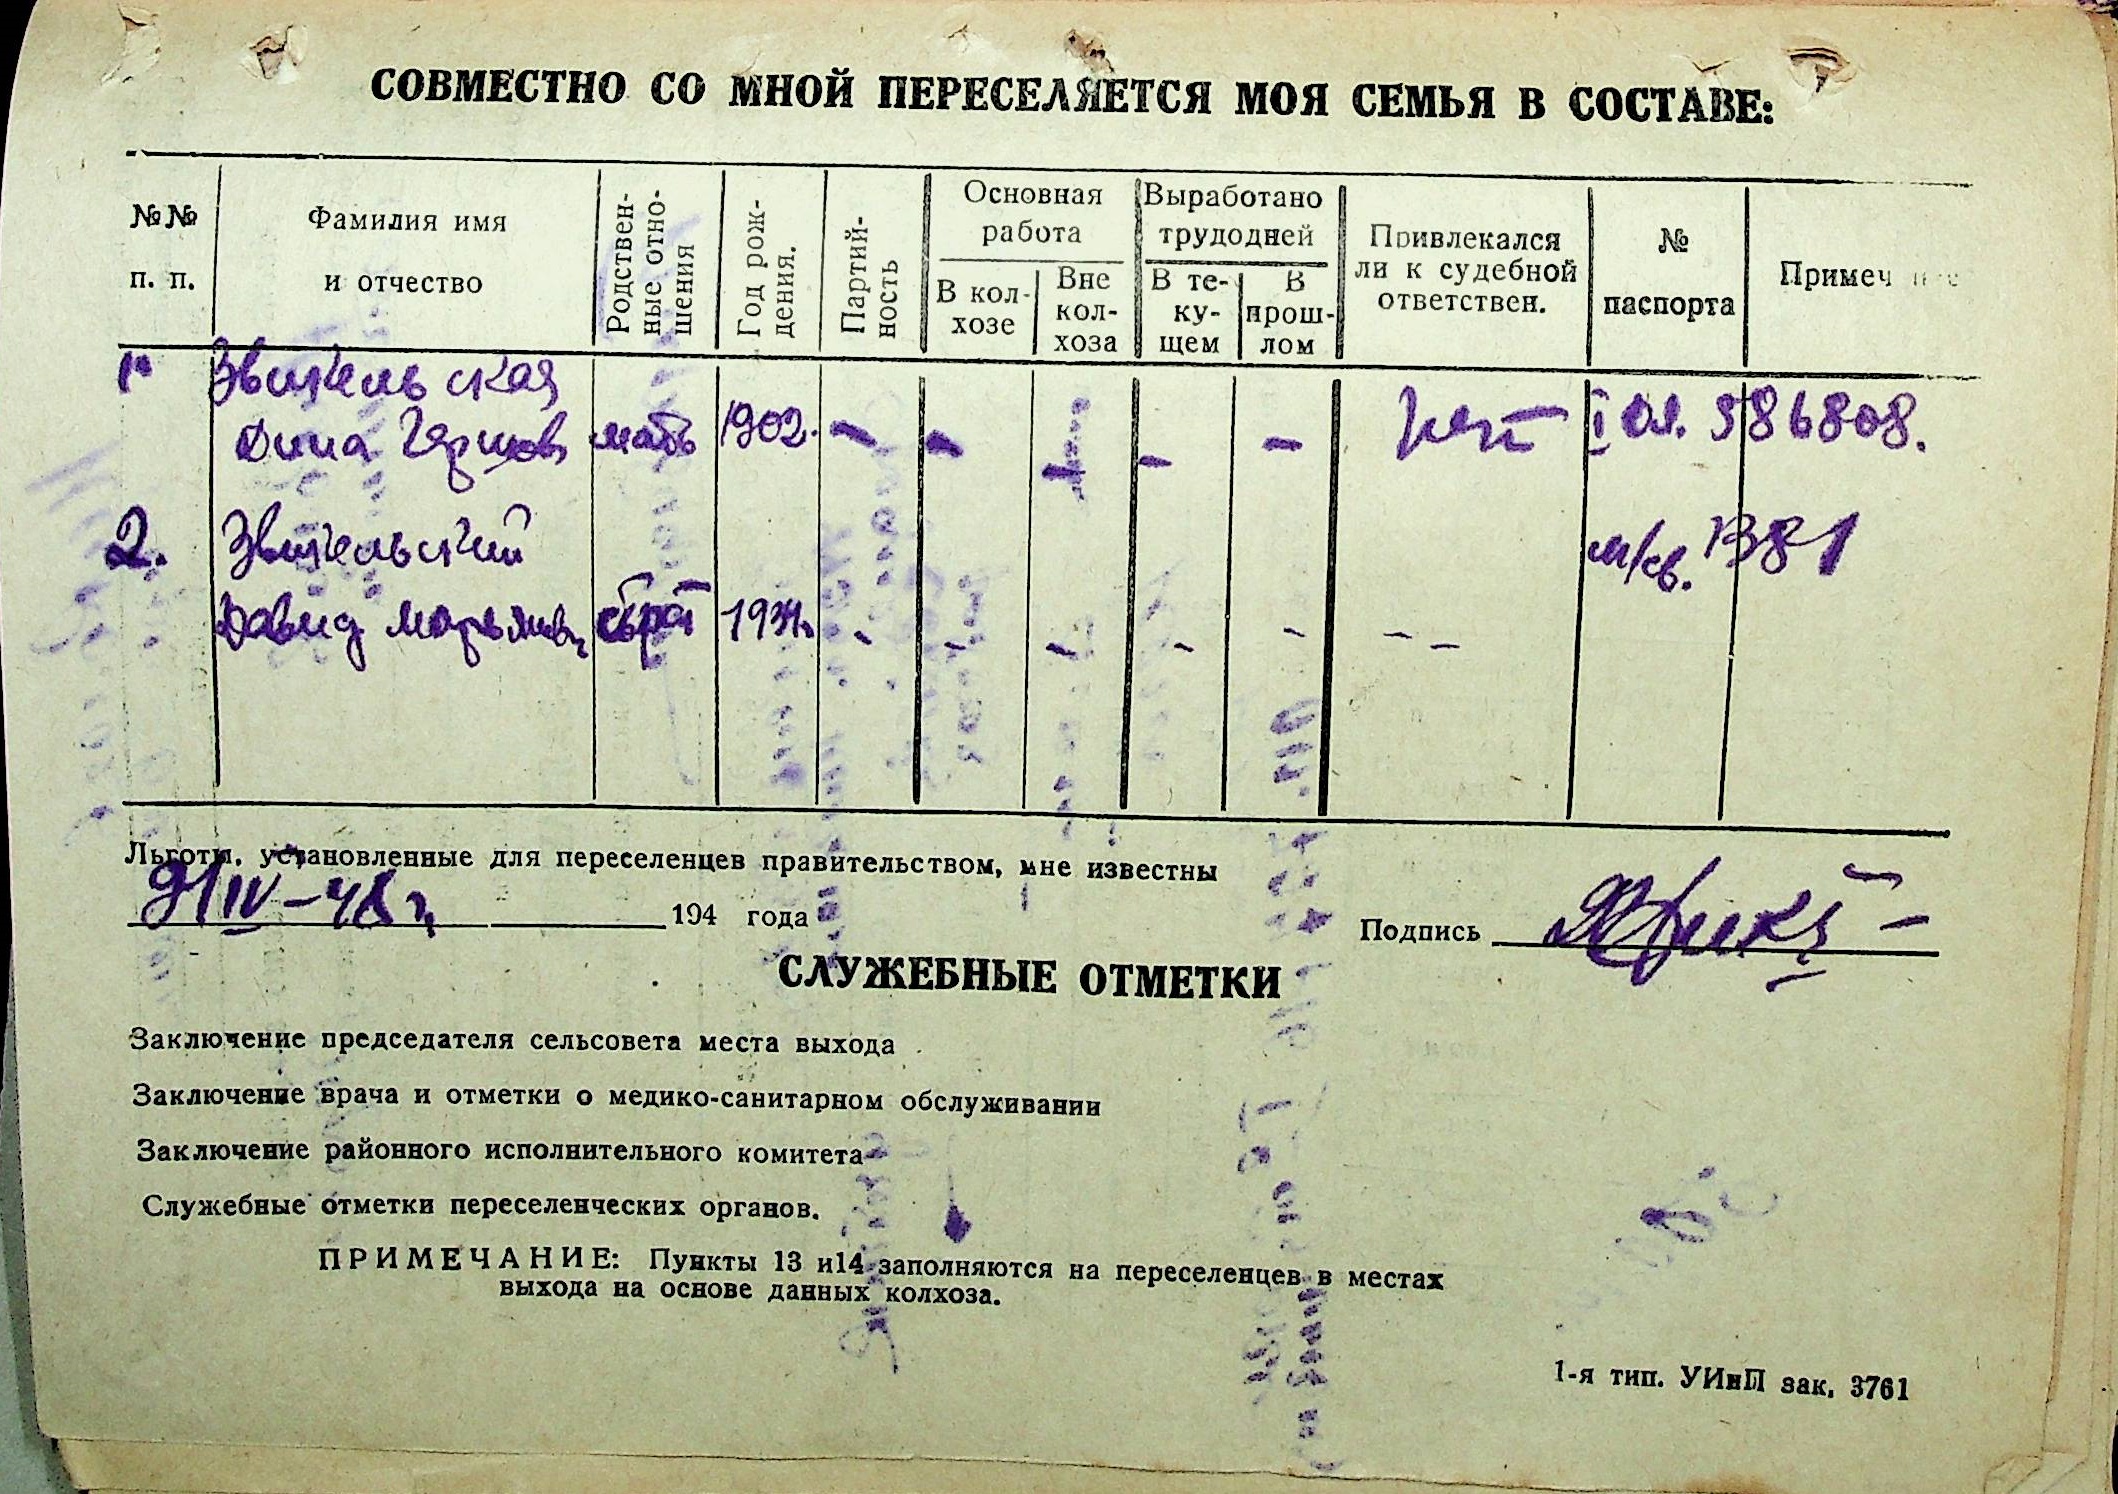 СОВМЕСТНО СО МНОЙ ПЕРЕСЕЛЯЕТСЯ МОЯ СЕМЬЯ В СОСТАВЕ:
№№ п. п.
Фамилия имя и отчество
Родствен-ные отно-шения
Год рож-дения.
Партий-ность
Основная работа
В кол-хозе
Вне кол-хоза
Выработано трудодней
В те-ку-щем
В прош-лом
Привлекался ли к судебной ответствен.
№ паспорта
Примеч
1. Звикельская
Дина мать 1902. – – – – – нет
2. Звикельский
м/св. 1381
Давид брат 1934 - - - - - - -
Льготы, установленные для переселенцев правительством, мне известны
9/IV-48 г. 194 года
Подпись
СЛУЖЕБНЫЕ ОТМЕТКИ
Заключение председателя сельсовета места выхода
Заключение врача и отметки о медико-санитарном обслуживании
Заключение районного исполнительного комитета
Служебные отметки переселенческих органов.
ПРИМЕЧАНИЕ: Пункты 13 и14 заполняются на переселенцев в местах
выхода на основе данных колхоза.
1-я тип. УИиП зак. 3761